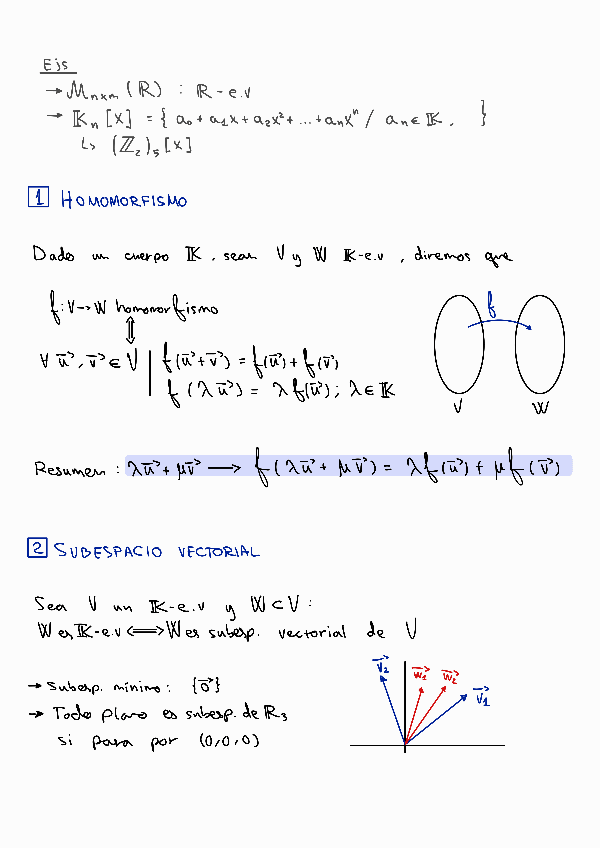 Ejs
→ Mnxm (ℝ) : ℝ-e.v
→ 𝕂n [x] = { a₀ + a₁x + a₂x² + ... + anxⁿ / an ∈ 𝕂, }
↳ (ℤ₂)₅ [x]
1 HOMOMORFISMO
Dado un cuerpo 𝕂, sean V y W 𝕂-e.v, diremos que
f: V → W homomorfismo
⇕
∀ u⃗, v⃗ ∈ V | f(u⃗+v⃗) = f(u⃗) + f(v⃗)
f(λu⃗) = λf(u⃗); λ ∈ 𝕂
f
V W
Resumen: λu⃗ + μv⃗ → f(λu⃗ + μv⃗) = λf(u⃗) + μf(v⃗)
2 SUBESPACIO VECTORIAL
Sea V un 𝕂-e.v y W ⊂ V:
W es 𝕂-e.v ⟺ W es subesp. vectorial de V
→ Subesp. mínimo: {0⃗}
→ Todo plano es subesp. de ℝ₃
si pasa por (0,0,0)
v⃗₂ w⃗₁ w⃗₂ v⃗₁